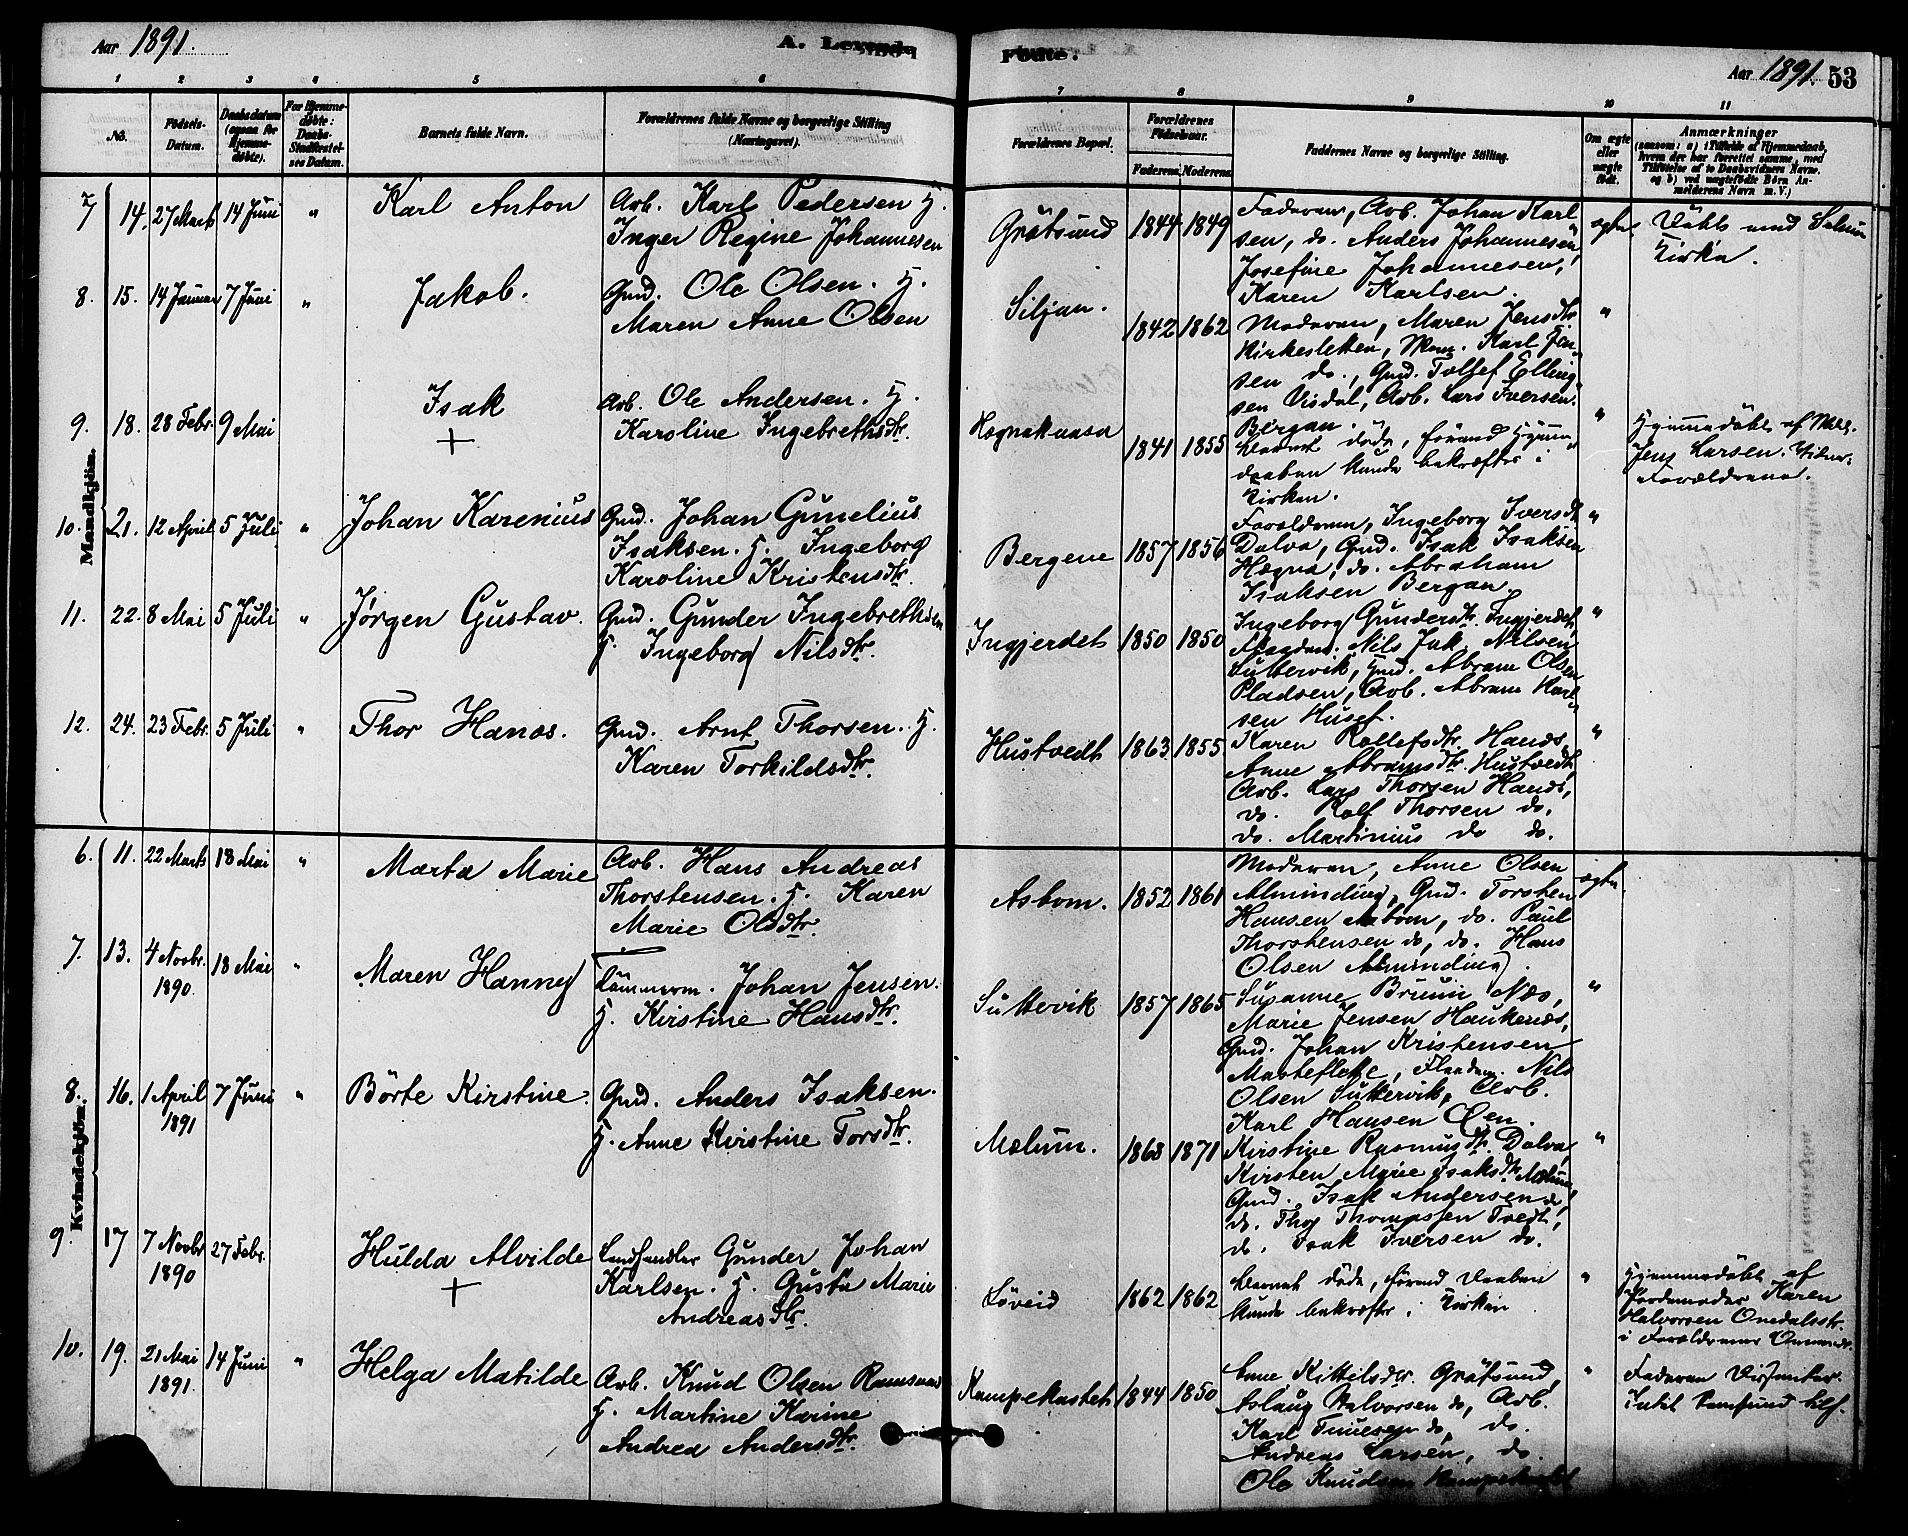 Aar 1891.
A. Levende
Fødte.
Aar 1891. 53
1 2 3 4 5 6 7 8 9 10 11
No.
Fødsels-
Datum.
Daabsdatum
(ogsaa for
Hjemme-
døbte).
For Hjemme-
døbte:
Daabs-
Stadfæstel-
ses Datum.
Barnets fulde Navn.
Forældrenes fulde Navne og borgerlige Stilling
(Næringsvei).
Forældrenes Bopæl.
Forældrenes
Fødselsaar.
Faderens. Moderens.
Faddernes Navne og borgerlige Stilling.
Om ægte
eller
uægte
født.
Anmærkninger
(saasom: a) i Tilfælde af Hjemmedaab,
hvem der har forrettet samme, med
Tilføielse af to Daabsvidners Navne,
og b) ved uægtefødte Børn An-
melderens Navn m. V.)
Mandkjön.
7 14. 27 Marts 14 Juni "
Karl Anton
Arb. Karl Pedersen H.
Inger Regine Johannesen
Gråtsund 1844 1849
Faderen, Arb. Johan Karl
sen, do. Anders Johannesen,
Josefine Johannesen,
Karen Karlsen.
egte.
Döbt ved
Kirke.
8. 15. 14 Januar 7 Juni "
Jakob.
Gmd. Ole Olsen. H.
Maren Anne Olsen
Siljan. 1842 1862
Moderen, Maren Jensdtr
Kirkesletten, Karl Jen-
sen do., Gmd. Tollef Elling-
sen Usdal, Arb. Lars Iversen
Bergan.
"
9. 18. 28 Febr. 9 Mai
Isak
+
Arb. Ole Andersen. H.
Karoline Ingebrethsdtr.
1841 1855
Barnet döde, förend Hjemme-
daaben kunde bekræftes i
Kirken.
"
Hjemmedöbt af
Jens Larsen.
Forældrene.
10. 21. 12 April 5 Juli "
Johan Karenius
Gmd. Johan Gunelius
Isaksen. H. Ingeborg
Karoline Kristensdtr.
Bergene 1857 1856
Forældrene, Ingeborg Iversdtr
Dalva, Gmd. Isak Isaksen
Hægna, do. Abraham
Isaksen Bergan.
"
11. 22. 8 Mai 5 Juli "
Jørgen Gustav.
Gmd. Gunder Ingebrethsen
H. Ingeborg Nilsdtr.
Ingjerdet 1850 1850
Ingeborg Gundersdtr Ingjerdet,
Nils Jak. Nilsen
Suttervik, Gmd. Abram Olsen
Pladsen, Arb. Abram Karl-
sen Huset.
"
12. 24. 23 Febr. 5 Juli "
Thor Hanos.
Gmd. Arnt Thorsen. H.
Karen Torkildsdtr.
Hustvedt 1863 1855
Karen Rollefsdtr. Hanås,
Anne Abramsdtr. Hustvedt,
Arb. Lars Thorsen Hanås,
do. Rolf Thorsen do.
do. Martinius do do.
"
Kvindekjön.
6. 11. 22 Marts 18 Mai "
Marta Marie
Arb. Hans Andreas
Thorstensen. H. Karen
Marie Olsdtr.
Asbom. 1852 1861
Moderen, Anne Olsen
Alminding, Gmd. Torsten
Hansen Asbom, do. Paul
Thorstensen do, do. Hans
Olsen Alminding.
egte.
7. 13. 4 Novbr. 1890 18 Mai "
Maren Hanny
Tömmerm. Johan Jensen.
H. Kirstine Hansdtr.
Suttevik 1857 1865
Susanne Bruun Næs,
Marie Jensen Haukenæs,
Gmd. Johan Kristensen
Nils
Olsen Suttervik, Arb.
Karl Hansen Øen.
"
8. 16. 1 April 1891 7 Juni "
Börte Kirstine.
Gmd. Anders Isaksen.
H. Anne Kirstine Torsdtr.
Mælum. 1868 1871
Kirstine Rasmusdtr. Dalva,
Kirsten Marie Isaksdtr Mælum,
Gmd. Isak Andersen do,
do. Thor Thomassen Tvedt,
do. Isak Iversen do.
"
9. 17 7 Novbr 1890 27 Febr.
Hulda Alvilde
+
Landhandler Gunder Johan
Karlsen. H. Gusta Marie
Andreasdtr.
Löveid 1862 1862
Barnet döde, förend Daaben
kunde bekræftes i Kirken
"
Hjemmedöbt af
Jordemoder Karen
Halvorsen
i Forældrenes
10. 19. 21 Mai 1891 14 Juni "
Helga Matilde
Arb. Knud Olsen Ramsaas
H. Martine Karine
Andrea Andersdtr.
Kampekastet 1844 1850
Anne Kittelsdtr. Gråtsund,
Aslaug Halvorsen do, Arb.
Karl do, do.
Andreas Larsen, do
Ole Knudsen Kampekastet
"
Faderen Dissenter.